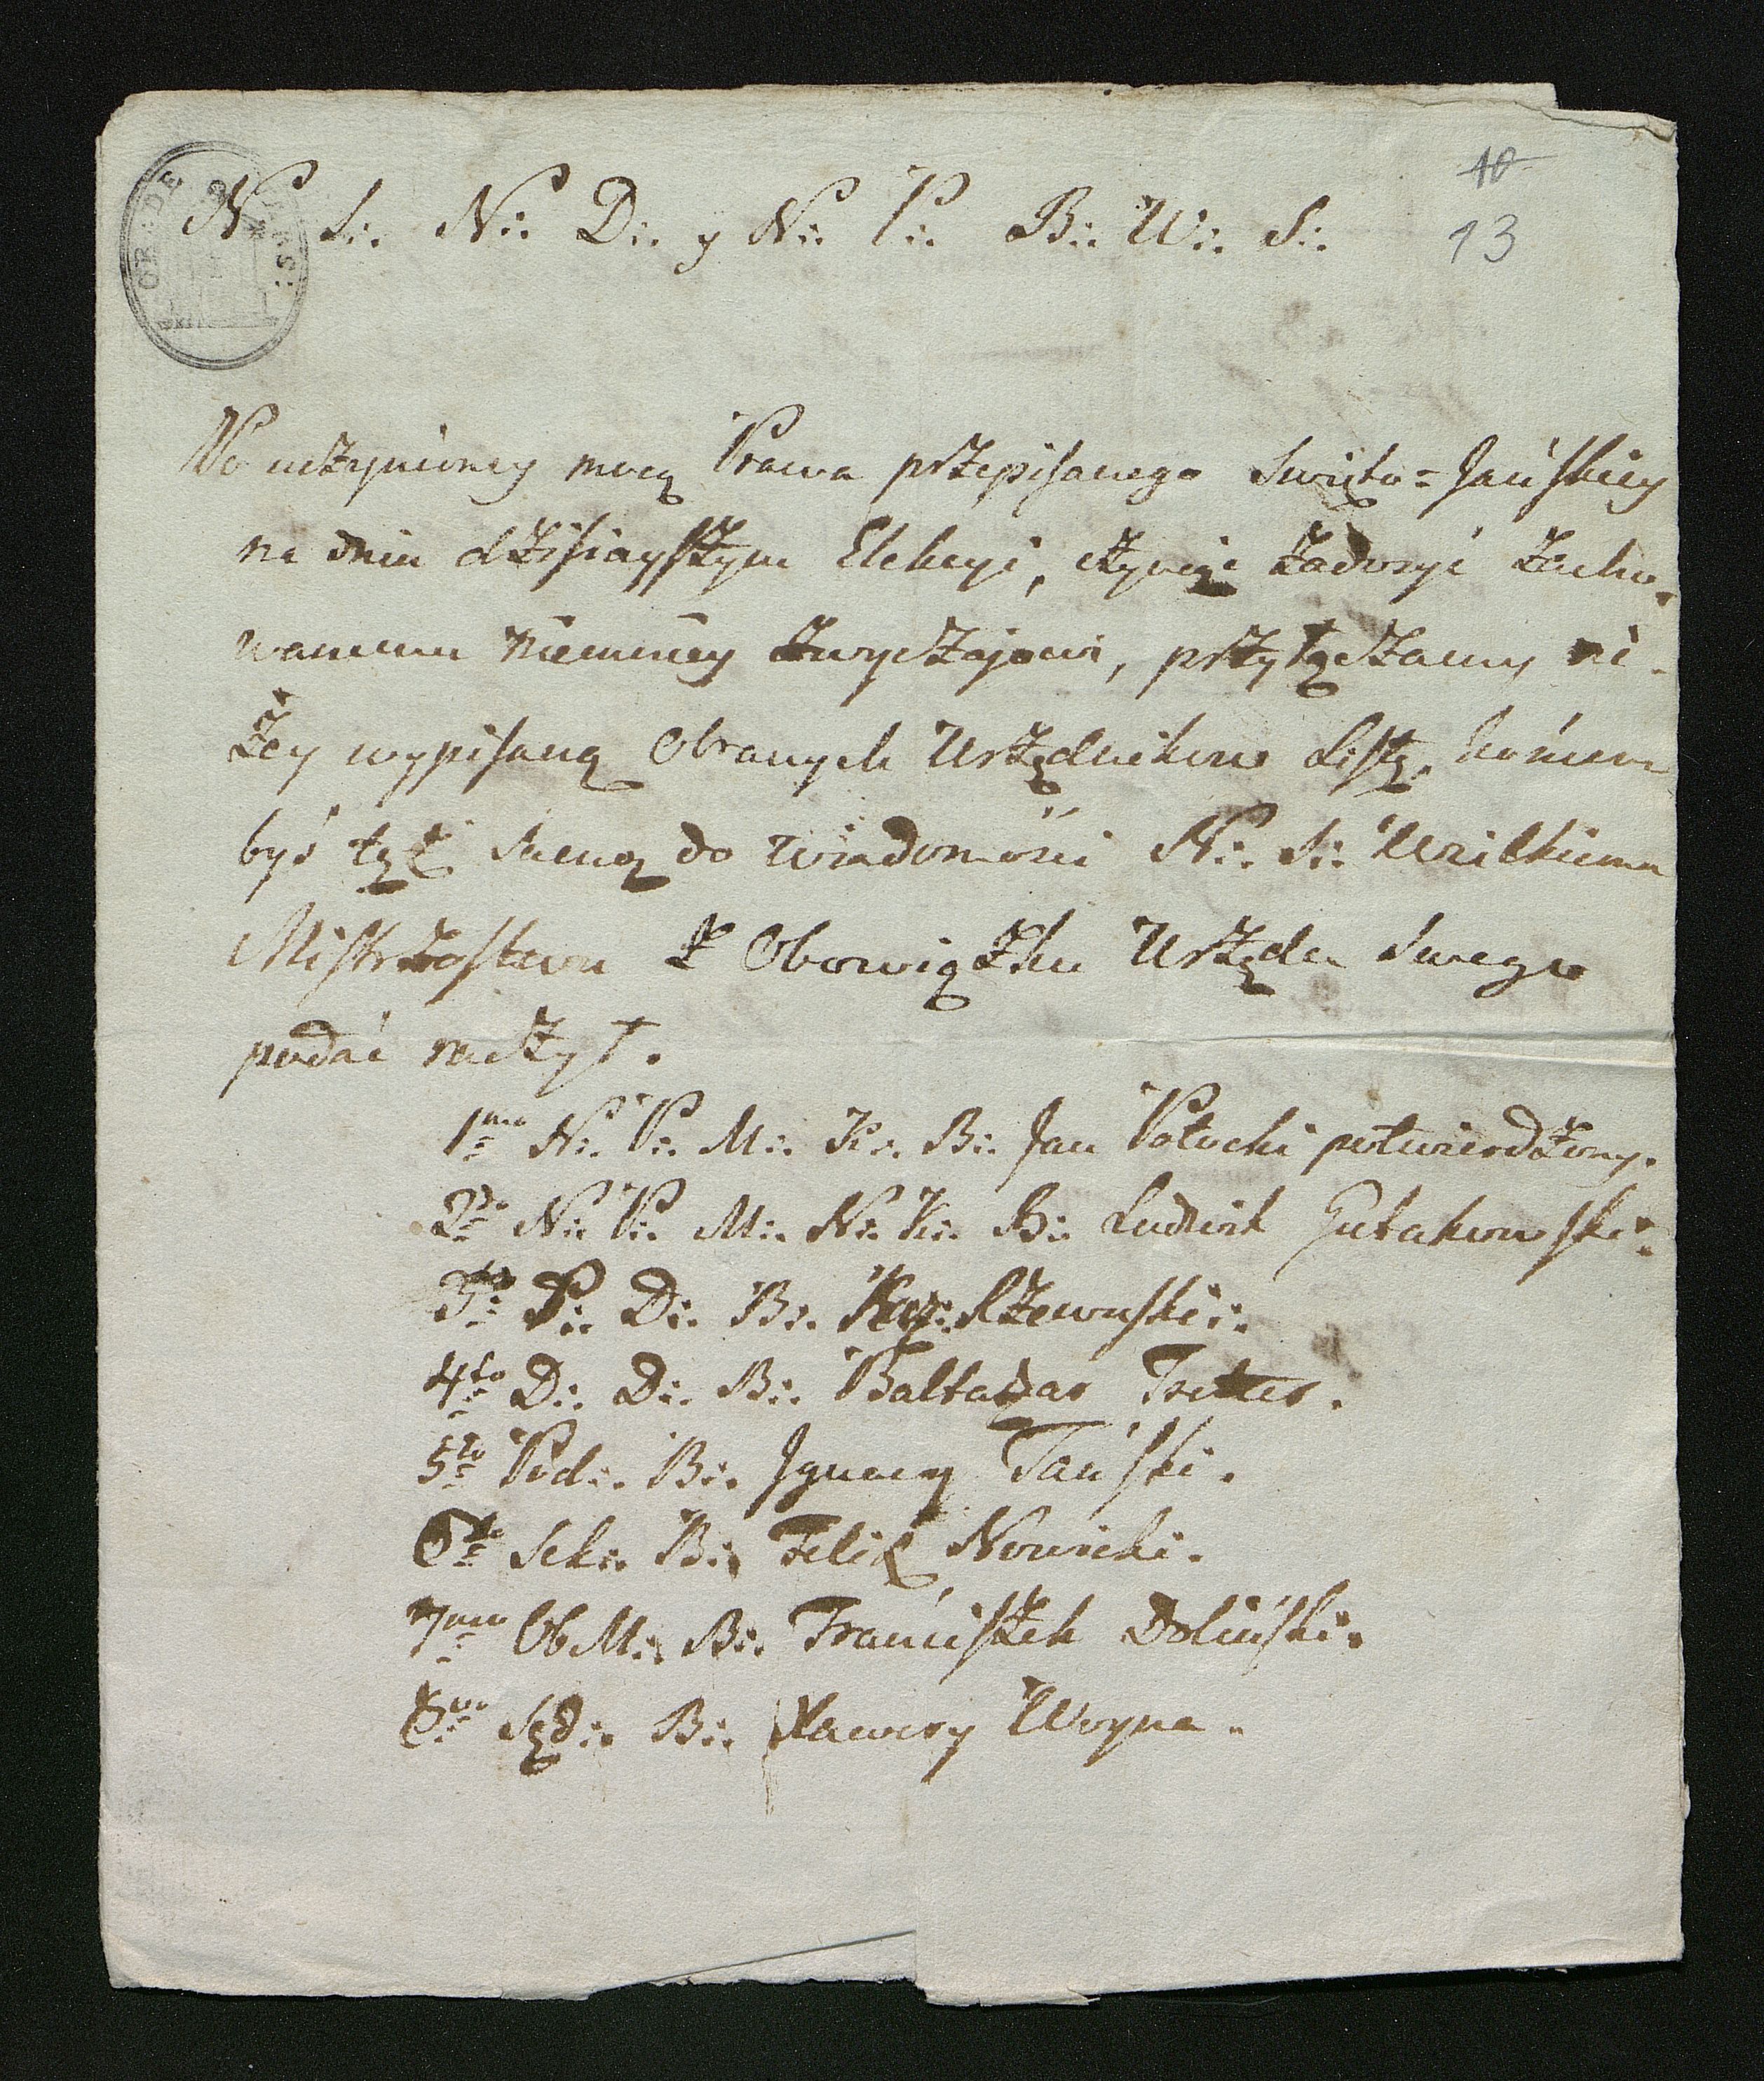 10
13
N∴ S∴ N∴ D∴ y N∴ P∴ B∴ W∴ S∴
Po uczynioney mocą Prawa przepisanego Swięto=Jańskiey
na dniu dzisiayszym Elekcyi, czyniąc zadosyć zacho„
wanemu niemniey zwyczajowi, przyłączamy ni„
żey wypisaną Obranych Urzędnikow Listę,
byś tęż samą do wiadomości N∴ S∴ Wielkiemu
Mistrzostwu z Obowiązku Urzędu Swego
podać raczył.
1mo N∴ P∴ M∴ K∴ B∴ Jan Potocki potwierdzony.
2do N∴ P∴ M∴ N∴ K∴ B∴ Ludwik Gutakowski∴
3tio P∴ D∴ B∴ Rzewuski∴
4to D∴ D∴ B∴ Baltazar Treter.
5to Pod∴ B∴ Jgnacy Tański.
6to Sek∴ B∴ Felix Nowicki.
7mo Ob M∴ B∴ Franciszek Doliński.
8vo Sęd∴ B∴ Xawery Woyna.